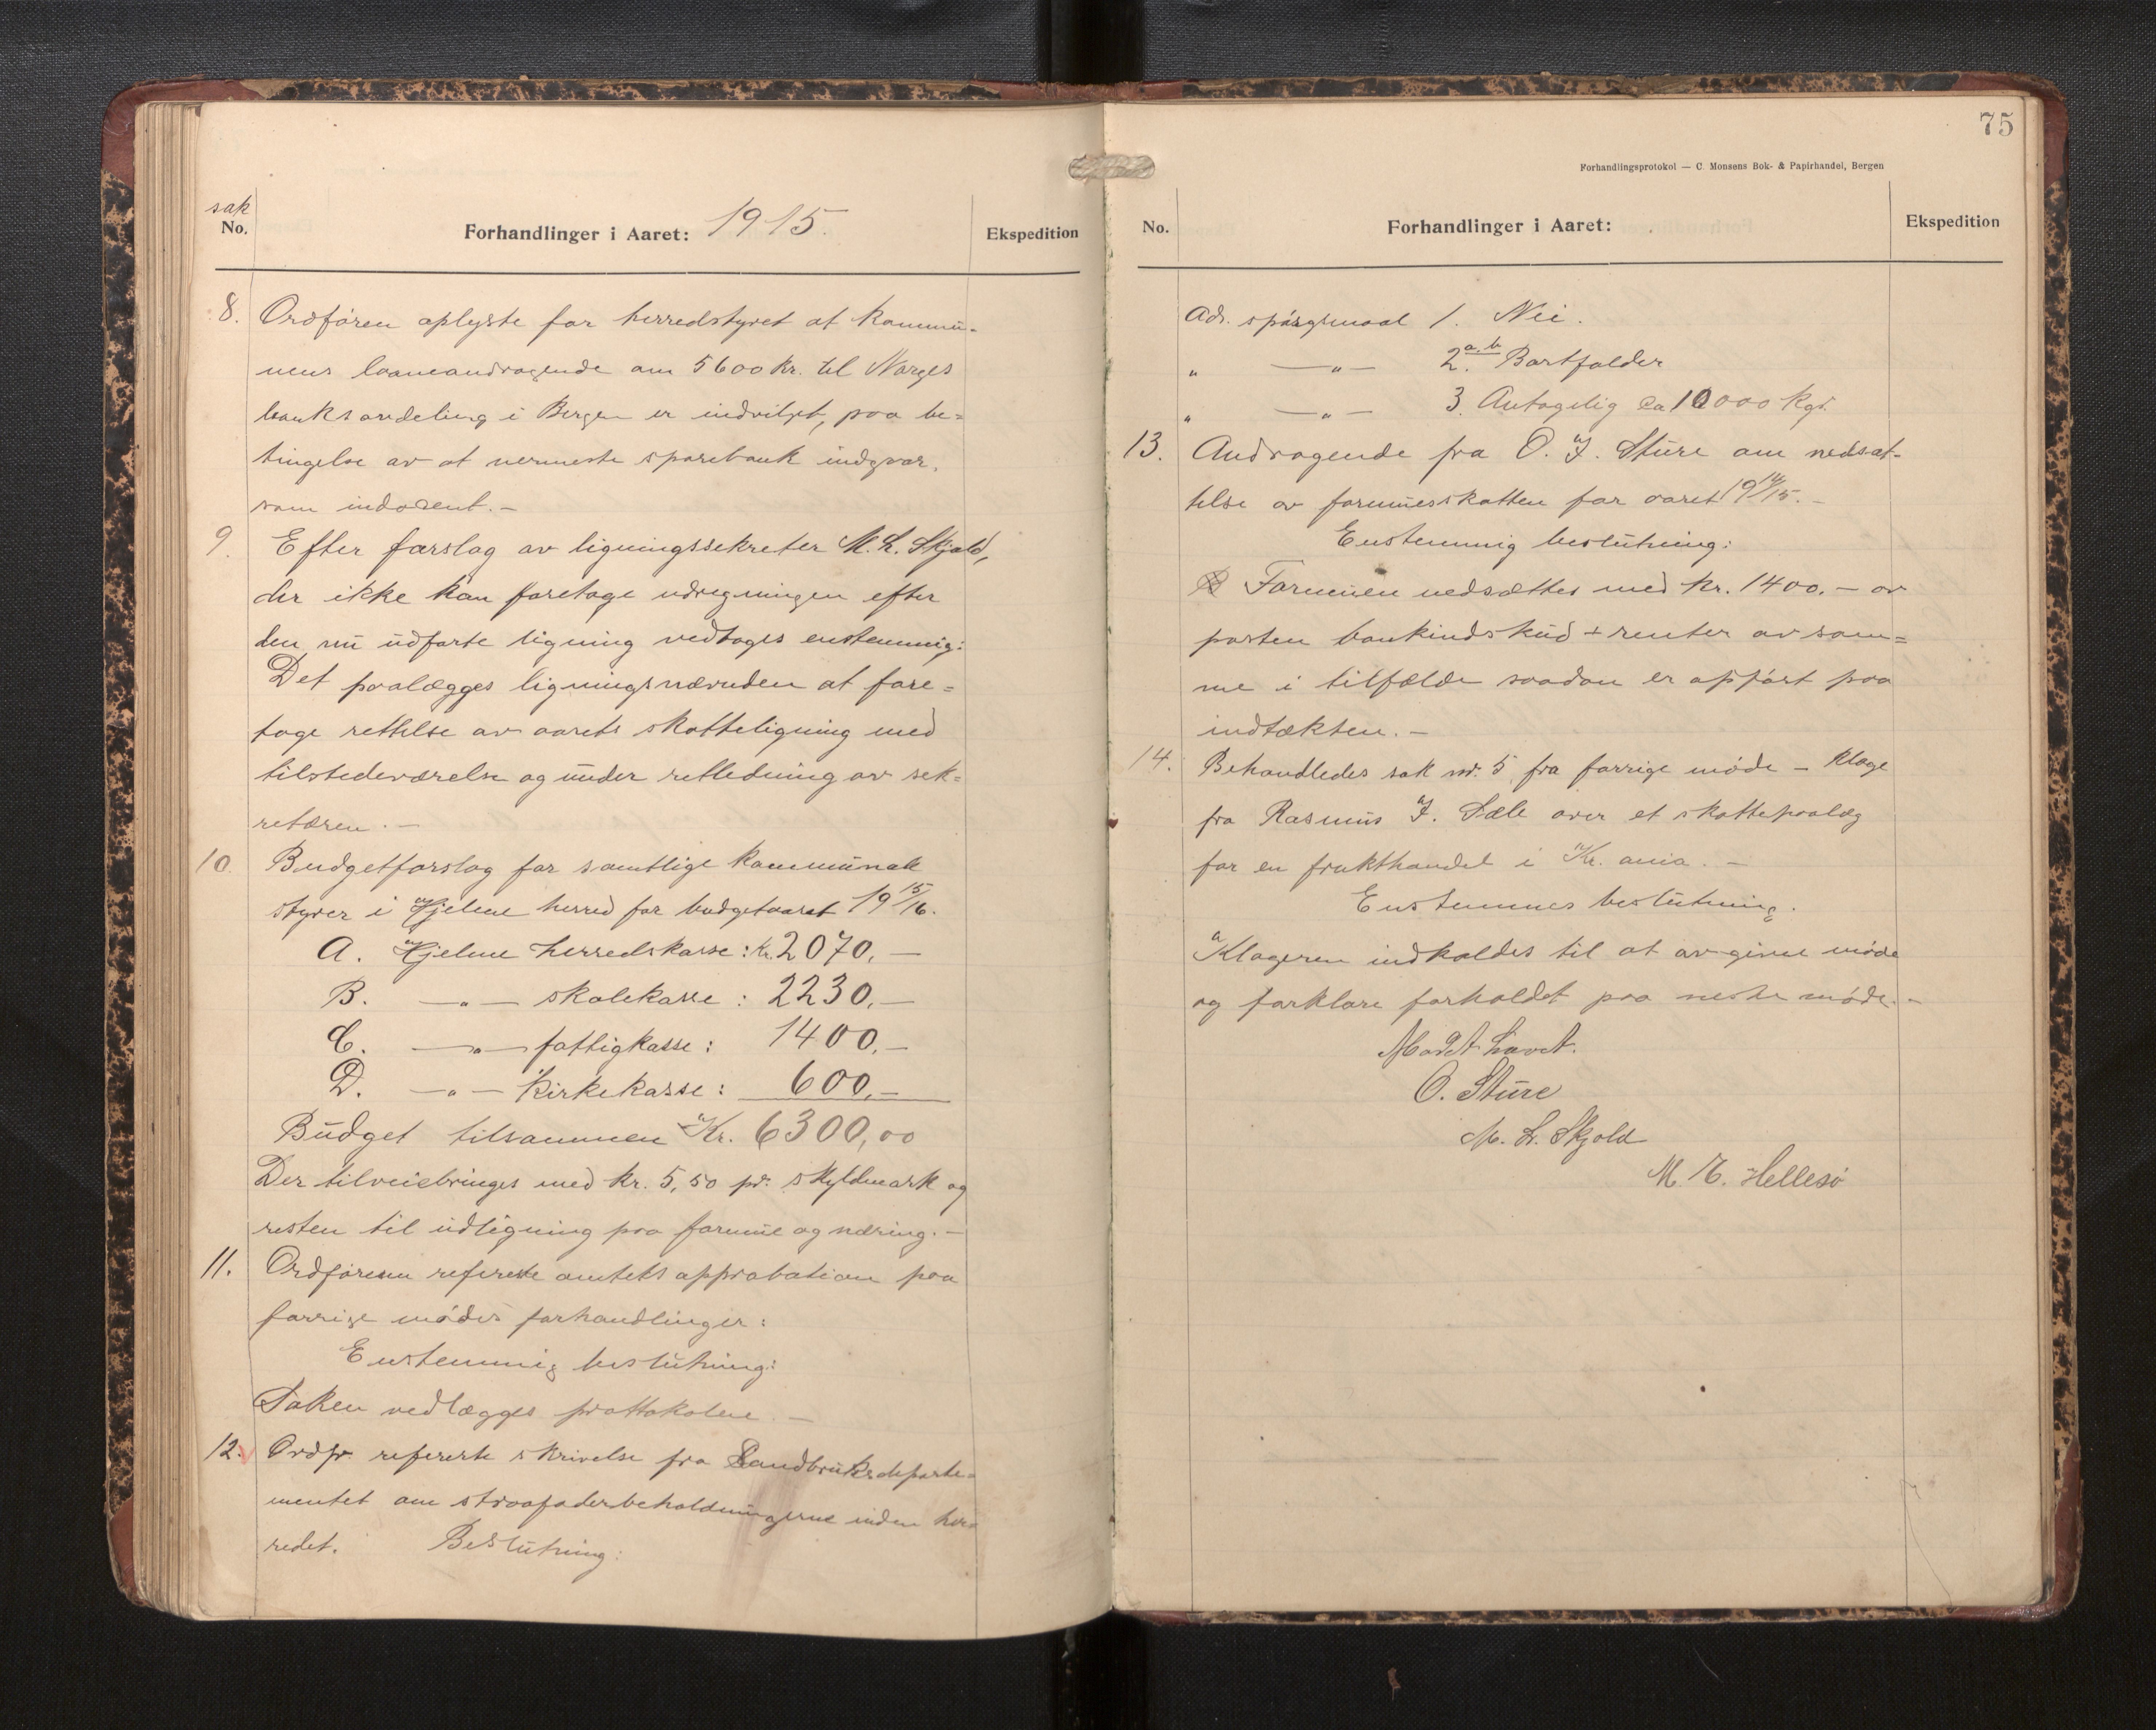 sak
No.
Forhandlinger i Aaret: 1915.
Ekspedition
8. Ordføren oplyste for herredstyret at kommu-
nens laaneandragende om 5600 kr. til Norges
banks avdeling i Bergen er indvilget, paa be=
tingelse av at nermeste sparebank indgaar,
som indosent. -
9. Efter forslag av ligningssekreter M. L. Skjold,
der ikke kan foretage udregningen efter
den nu udførte ligning vedtoges enstemmig:
Det paalægges ligningsnævnden at fore=
tage rettelse av aarets skatteligning med
tilstedeværelse og under retledning av sek=
retæren. -
10. Budgetforslag for samtlige kommunale
styrer i Hjelme herred for budgetaaret 19 15/16.
A. Hjelme herredskasse: Kr. 2070, -
B. - „ - skolekasse: 2230, -
C. - „ - fattigkasse: 1400, -
D. - „ - Kirkekasse: 600, -
Budget tilsammen Kr. 6300,00
Der tilveiebringes med kr. 5,50 pr. skyldmark og
resten til udligning paa formue og næring. -
11. Ordføreren refererte amtets approbation paa
forrige mødes forhandlinger:
Enstemmig beslutning:
Saken vedlægges prottokolene. -
12. Ordfr. refererte skrivelse fra Landbruksdeparte=
mentet om straafoderbeholdningerne inden her=
redet. Beslutning:
75
Forhandlingsprotokol — C. Monsens Bok- & Papirhandel, Bergen
No.
Forhandlinger i Aaret:
Ekspedition
Ad. spørgsmaal 1. Nei.
„ - „ - 2. a. b Bortfalder
„ - „ - 3. Antagelig ca 10000 kgr.
13. Andragende fra O. J. Sture om nedsæt-
telse av formuesskatten for aaret 19 14/15. -
Enstemmig beslutning:
Formuen nedsættes med kr. 1400. - av
posten bankindskud + renter av sam=
me i tilfælde saadan er opført paa
indtækten. -
14. Behandledes sak nr. 5 fra forrige møde - klage
fra Rasmus J. Sæle over et skattepaalæg
for en frukthandel i Kr. ania. -
Enstemmes beslutning.
Klageren indkaldes til at avgive møde
og forklare forholdet paa neste møde. -
Mødet hævet.
O. Sture
M. L. Skjold
M. E. Hellesø